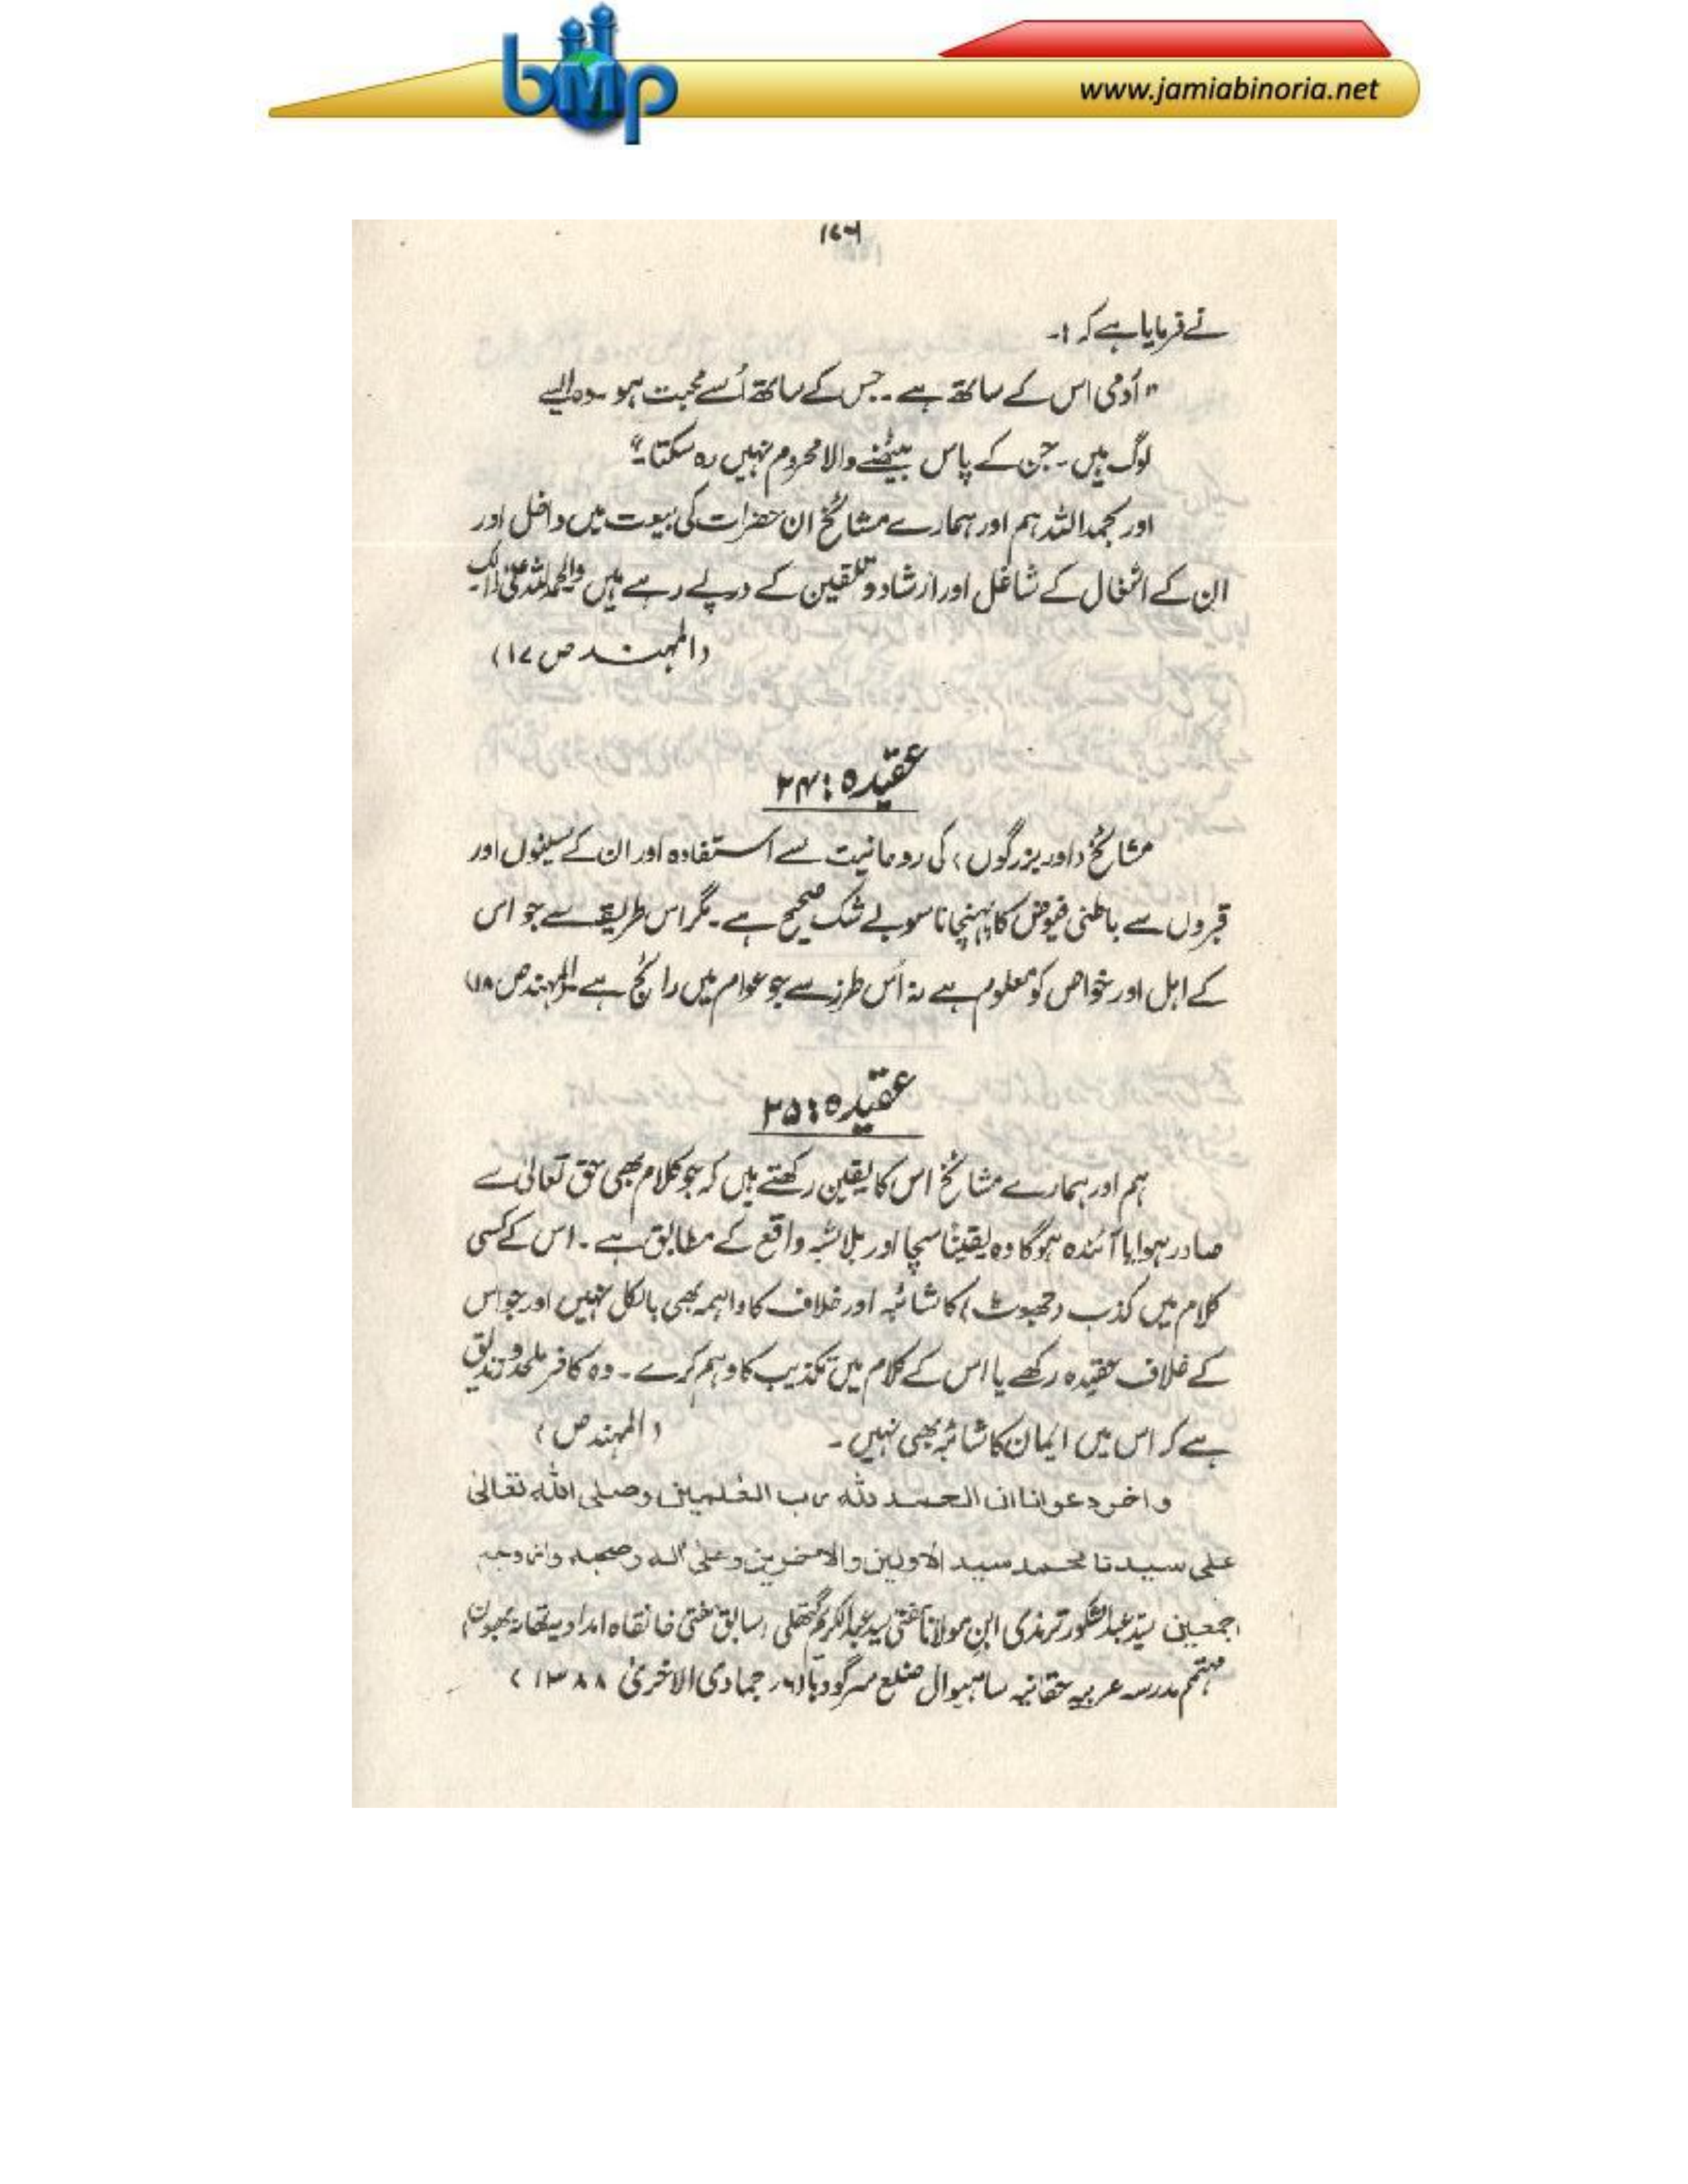 bmp
www.jamiabinoria.net
۱۷۶
نے فرمایا ہے کہ :۔
" آدمی اس کے ساتھ ہے ۔ جس کے ساتھ اُسے محبت ہو ۔ وہ ایسے
لوگ ہیں ۔ جن کے پاس بیٹھنے والا محروم نہیں رہ سکتا ۔"
اور بحمد اللہ ہم اور ہمارے مشائخ ان حضرات کی بیعت میں داخل اور
ان کے اشغال کے شاغل اور ارشاد و تلقین کے درپے رہے ہیں والحمد للہ علیٰ ذالک
(المہند ص ۱۷)
عقیدہ : ۲۴
مشائخ (اور بزرگوں) کی روحانیت سے استفادہ اور ان کے سینوں اور
قبروں سے باطنی فیوض کا پہنچانا سو بے شک صحیح ہے ۔ مگر اس طریقے سے جو اس
کے اہل اور خواص کو معلوم ہے نہ اُس طرز سے جو عوام میں رائج ہے (المہند ص ۱۸)
عقیدہ : ۲۵
ہم اور ہمارے مشائخ اس کا یقین رکھتے ہیں کہ جو کلام بھی حق تعالیٰ سے
صادر ہوا یا آئندہ ہوگا وہ یقیناً سچا اور بلاشبہ واقع کے مطابق ہے ۔ اس کے کسی
کلام میں کذب (جھوٹ) کا شائبہ اور خلاف کا واہمہ بھی بالکل نہیں اور جو اس
کے خلاف عقیدہ رکھے یا اس کے کلام میں تکذیب کا وہم کرے ۔ وہ کافر ملحد و زندیق
ہے کہ اس میں ایمان کا شائبہ بھی نہیں ۔ (المہند ص )
واخر دعوانا ان الحمد لله رب العلمین وصلی الله تعالیٰ
علی سیدنا محمد سید الاولین والاخرین وعلیٰ اله وصحبه وازواجه
اجمعین سید عبدالشکور ترمذی ابن مولانا مفتی سید عبدالکریم گمتھلی (سابق مفتی خانقاہ امدادیہ تھانہ بھون)
مہتمم مدرسہ عربیہ حقانیہ ساہیوال ضلع سرگودہا (۶؍ جمادی الاخریٰ ۱۳۸۸)